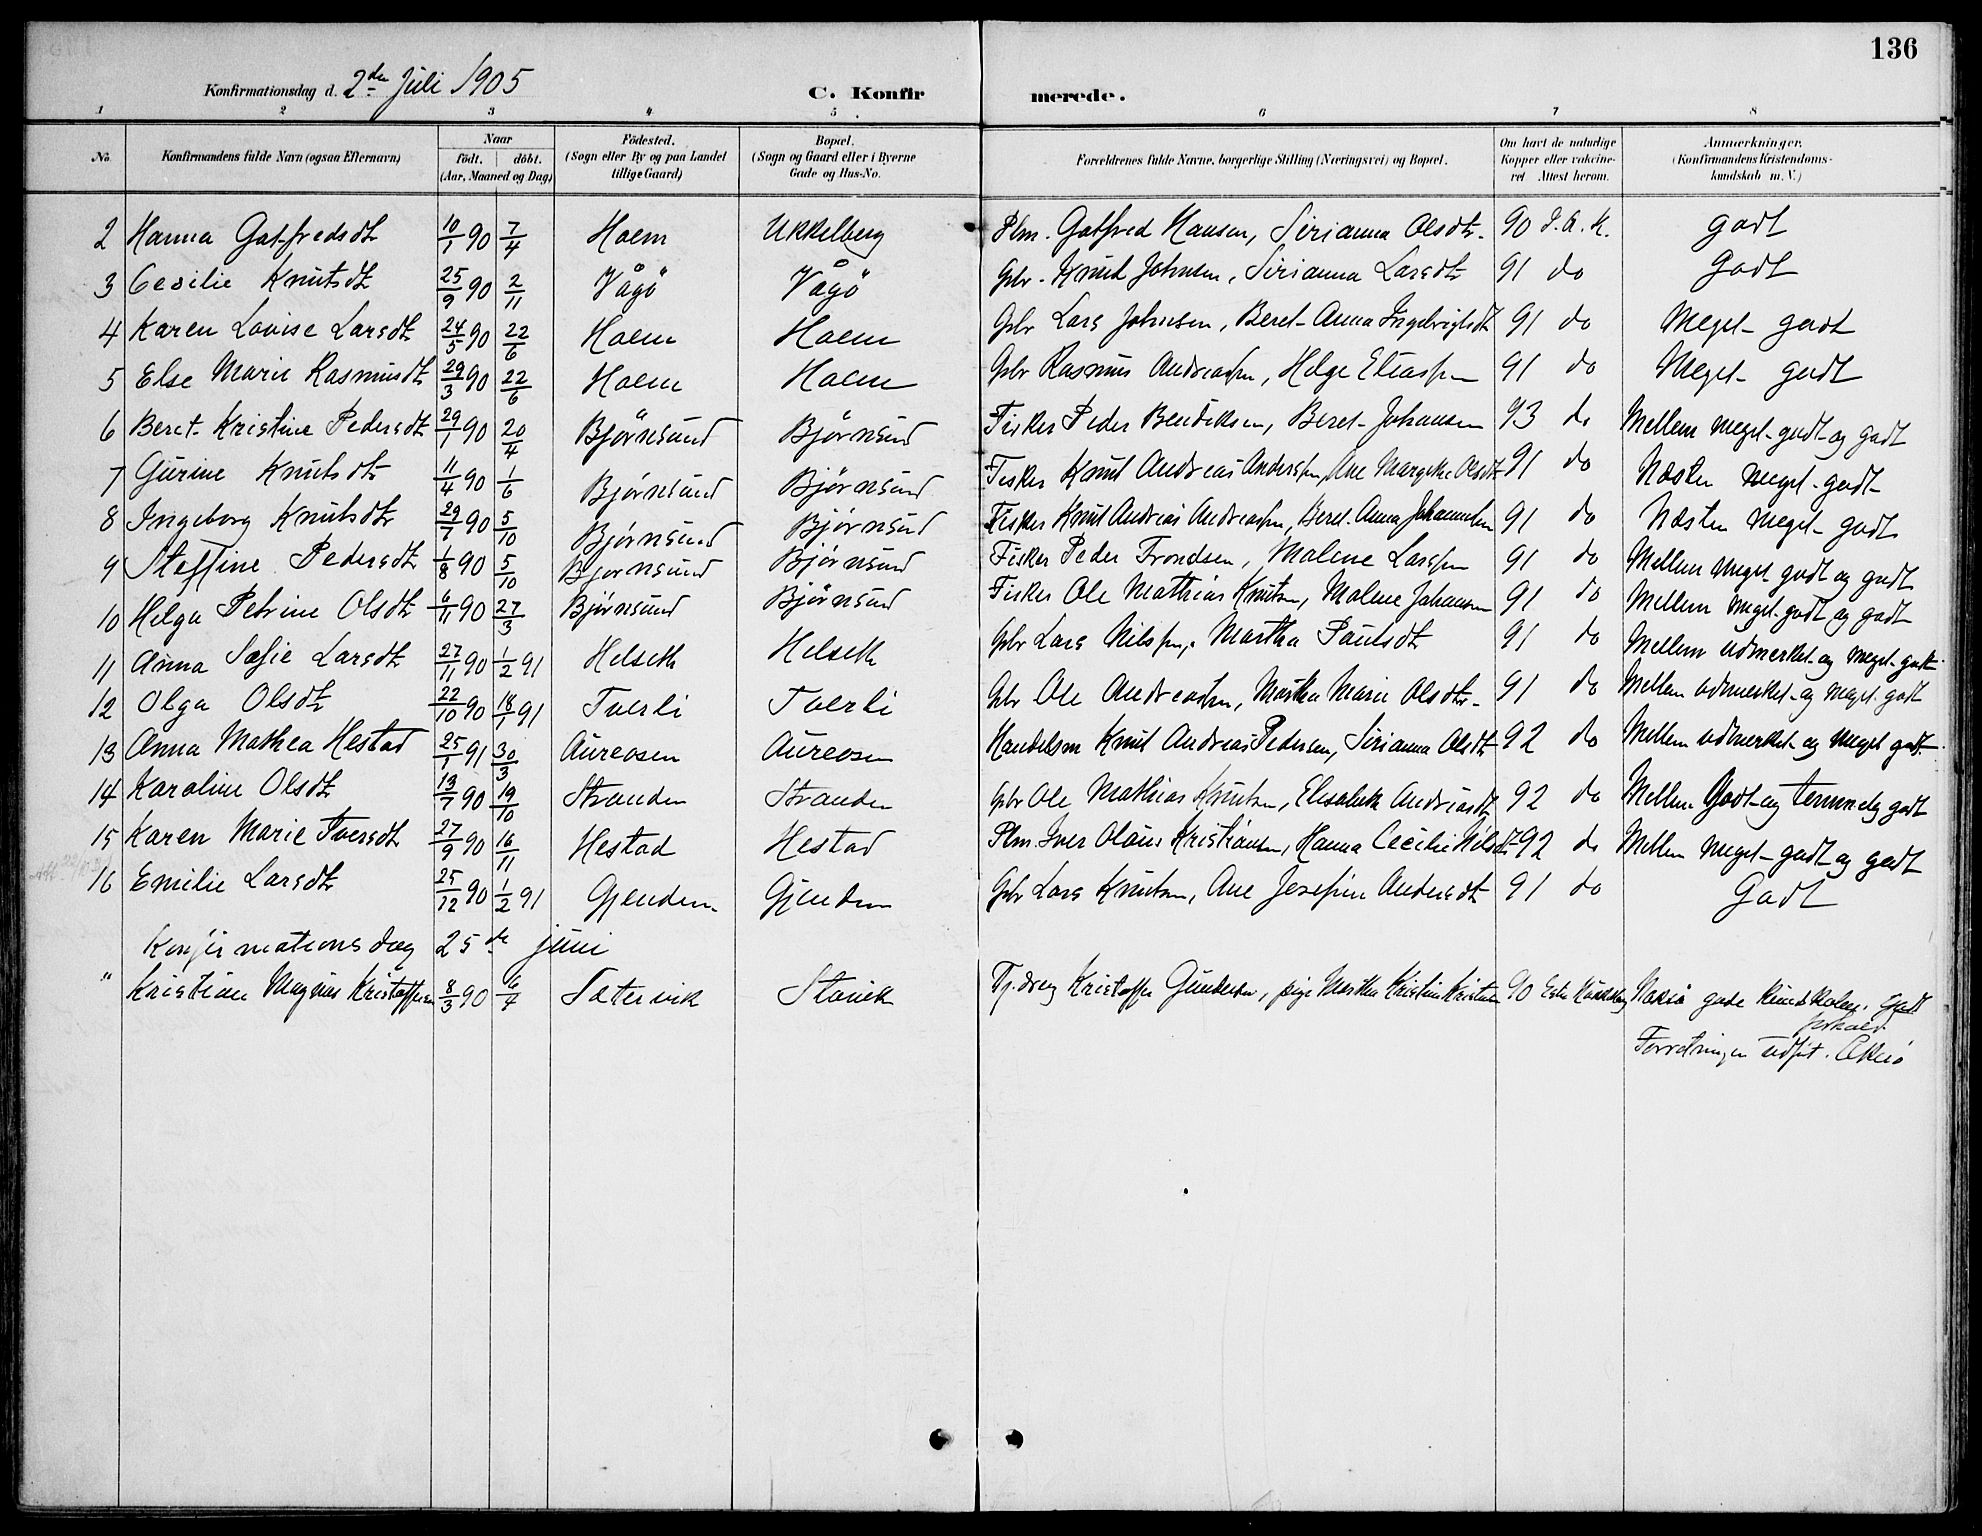 136
Konfirmationsdag d. 2den Juli 1905
C. Konfirmerede.
1 2 3 4 5 6 7 8
No. Konfirmandens fulde Navn (ogsaa Efternavn) Naar født. døbt. (Aar, Maaned og Dag) Fødested. (Sogn eller By og paa Landet tillige Gaard) Bopæl. (Sogn og Gaard eller i Byerne Gade og Hus-No. Forældrenes fulde Navne, borgerlige Stilling (Næringsvei) og Bopæl. Om havt de naturlige Kopper eller vakcineret Attest herom. Anmærkninger. (Konfirmandens Kristendomskundskab m. V.)
2 Hanna Gotfredsdt 10/1 90 7/4 Holm Ukkelberg Plm. Gotfred Hansen, Sirianna Olsdtr. 90 godt
3 Cecilie Knutsdt 25/9 90 2/11 Vågö Vågö Gbr. Knud Johnsen, Sirianna Larsdtr 91 do Godt
4 Karen Lovise Larsdtr 24/5 90 22/6 Holm Holm Gbr Lars Johnsen, Beret-Anna Ingebrigtsdt 91 do Meget godt
5 Else Marie Rasmusdt 29/3 90 22/6 Holm Holm Gbr Rasmus Andreassen, Helge Eliassen 91 do Meget godt
6 Beret-Kristine Pedersdt 29/1 90 20/4 Björnsund Björnsund Fisker Peder Bendiksen, Beret Johansen 93 do Mellem meget godt og godt
7 Gurine Knutsdtr 11/4 90 1/6 Björnsund Björnsund Fisker Knut Andreas Anderssen, Ane Margrethe Olsdt 91 do Næsten meget godt
8 Ingeborg Knutsdtr 29/7 90 5/10 Björnsund Björnsund Fisker Knut Andreas Andreassen, Beret-Anna Johannesen 91 do Næsten meget godt
9 Steffine Pedersdt 1/8 90 5/10 Björnsund Björnsund Fisker Peder Trondsen, Malene Larssen 91 do Mellem meget godt og godt
10 Helga Petrine Olsdtr 6/11 90 27/3 Björnsund Björnsund Fisker Ole Mathias Knutsen, Malene Johansen 91 do Mellem meget godt og godt
11 Anna Sofie Larsdtr 27/11 90 1/2 91 Helseth Helseth Gbr Lars Nilssen, Martha Paulsdt 91 do Mellem udmerket og meget godt
12 Olga Olsdt 22/10 90 18/1 91 Tverli Tverli Gbr Ole Andreassen, Martha Marie Olsdtr. 91 do Mellem udmerket og meget godt
13 Anna Mathea Hestad 25/1 91 30/3 Aureosen Aureosen Handelsm Knut Andreas Pedersen, Sirianna Olsdt 92 do Mellem udmerket og meget godt
14 Karoline Olsdtr 13/7 90 19/10 Stranden Stranden Gbr Ole Mathias Knutsen, Elisabeth Andreasdt 92 do Mellem Godt og temmelig godt
15 Karen Marie Iversdt 27/9 90 16/11 Hestad Hestad Plm. Iver Olaus Kristiansen, Hanna Cecilie Nilsdt 92 do Mellem meget godt og godt
16 Emilie Larsdtr 25/12 90 1/2 91 Gjendem Gjendem Gbr Lars Knutsen, Ane Josefine Andersdt 91 do Godt
Konfirmationsdag 25de juni
" Kristian Magnus Kristoffersen 8/3 90 6/4 Sætervik Stavik Tj.dreng Kristoffer Gundersen, pige Martha Kristine 90 gode kundskaber. Godt
forhold
Forretningen udført.